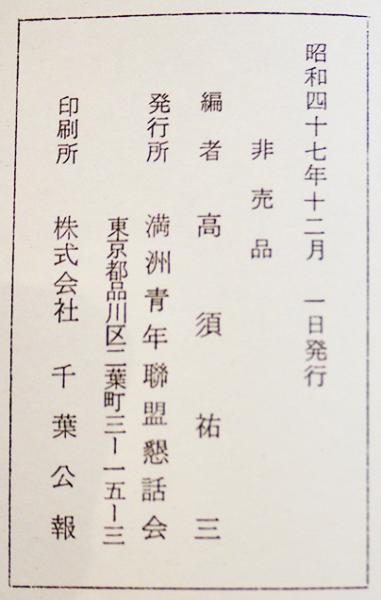 昭和四十七年十二月　一日発行
非売品
編者　高須祐三
発行所　満洲青年聯盟懇話会
東京都品川区二葉町三ー一五ー三
印刷所　株式会社　千葉公報